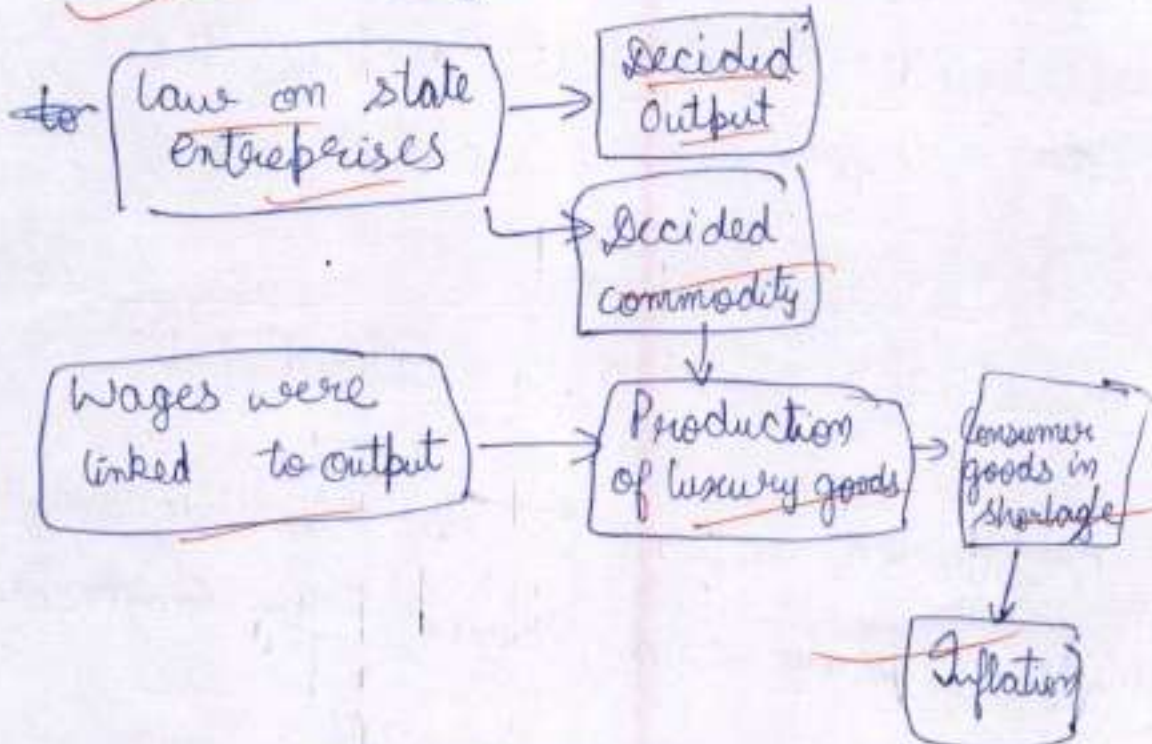 Law on state
entreprises
Decided
Output
Decided
commodity
Wages were
linked to output
Production
of luxury goods
Consumer
goods in
shortage
Inflation